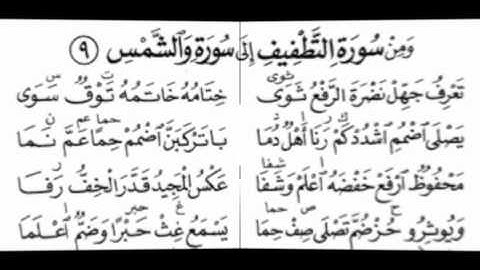 وَمِنْ سُورَةِ التَّطْفِيفِ إِلَى سُورَةِ وَالشَّمْسِ ٩
تَعْرِفُ جَهِّلْ نَضْرَةَ الرَّفْعُ ثَوَى خِتَامُهُ خَاتَمُهُ تَوْقٌ سَوَى
يَصْلَى اضْمُمِ اشْدُدْ كَمْ رَنَا أَهْلٌ دُمَا بَا تَرْكَبَنَّ اضْمُمْ حِمًا عَمَّ نَمَا
مَحْفُوظٌ ارْفَعْ خَفْضَهُ اعْلَمْ وَشَفَا عَكْسُ الْمَجِيدُ قَدَّرَ الْخِفُّ رَفَا
وَيُوثِرُو حُزْ ضُمَّ تَصْلَى صِفْ حِمَا يَسْمَعُ غِثْ حَبْرًا وَضَمُّ اعْلَمَا